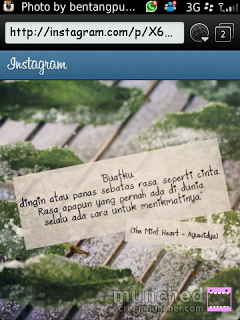 Photo by bentangpu...
3G
http://instagram.com/p/X6...
2
Instagram
Buatku
dingin atau panas sebatas rasa seperti cinta.
Rasa apapun yang pernah ada di dunia
selalu ada cara untuk menikmatinya.
(The Mint Heart - Ayuwidya)
munched
screenmuncher.com